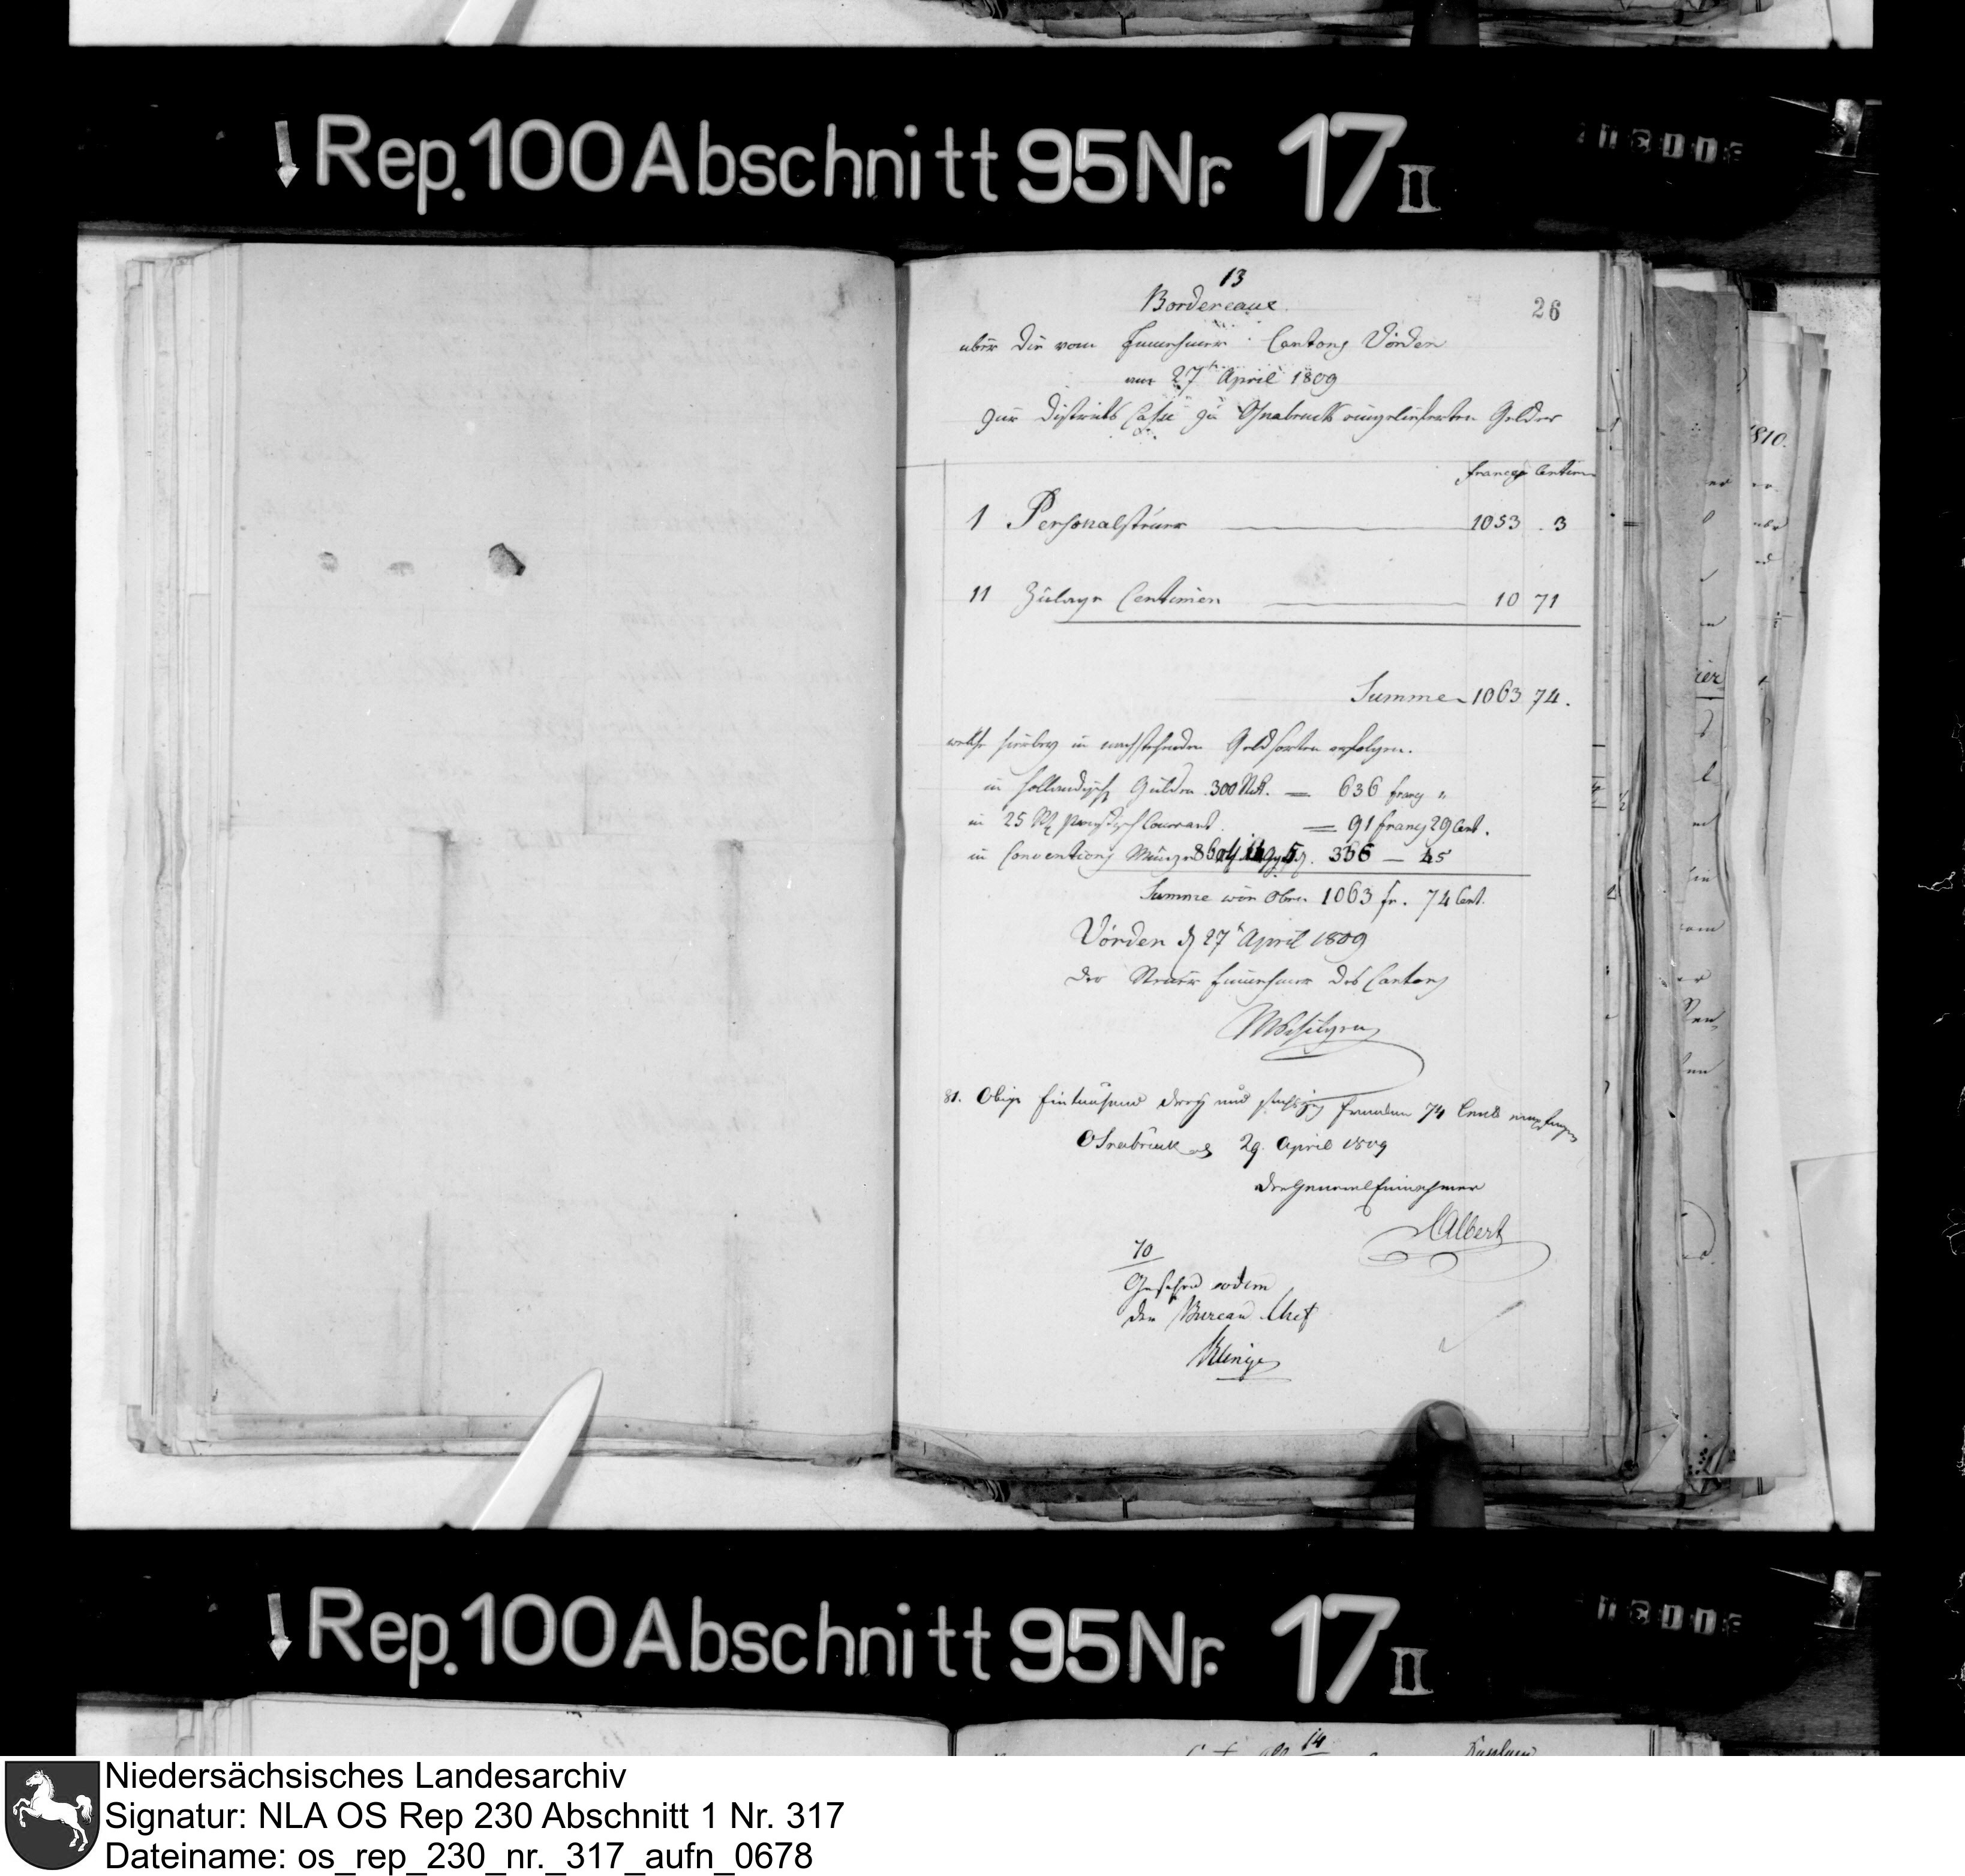 Rep. 100 Abschnitt 95 Nr. 17 II
13
26
Bordereaux
über die vom Einnehmer Cantons Vörden
am 27t April 1809
zur Districts Casse zu Osnabruck eingelieferten Gelder
Francs Centim
1 Personalsteuer 1053 . 3
11 Zulage Centimen 10 71
Summe 1063 74.
welche hierbey in nachstehenden Geldsorten erfolgen.
in holländisch Gulden 300 = 636 francs "
in 25 preussisch Courant. = 91 francs 29 Cent.
in Conventions Münze 336 — 45
Summe wie oben 1063 fr. 74 Cent.
Vörden d 27t April 1809
Der Steuer Einnehmer des Cantons
81. Obige Eintausend drey und sechszig Franken 74 Cents empfangen
Osnabrück d 29. April 1809
Der General Einnehmer
Albert
70
Gesehen eodem
Der Bureau Chef
Klinge
1810.
Rep. 100 Abschnitt 95 Nr. 17 II
14
Niedersächsisches Landesarchiv
Signatur: NLA OS Rep 230 Abschnitt 1 Nr. 317
Dateiname: os_rep_230_nr._317_aufn_0678